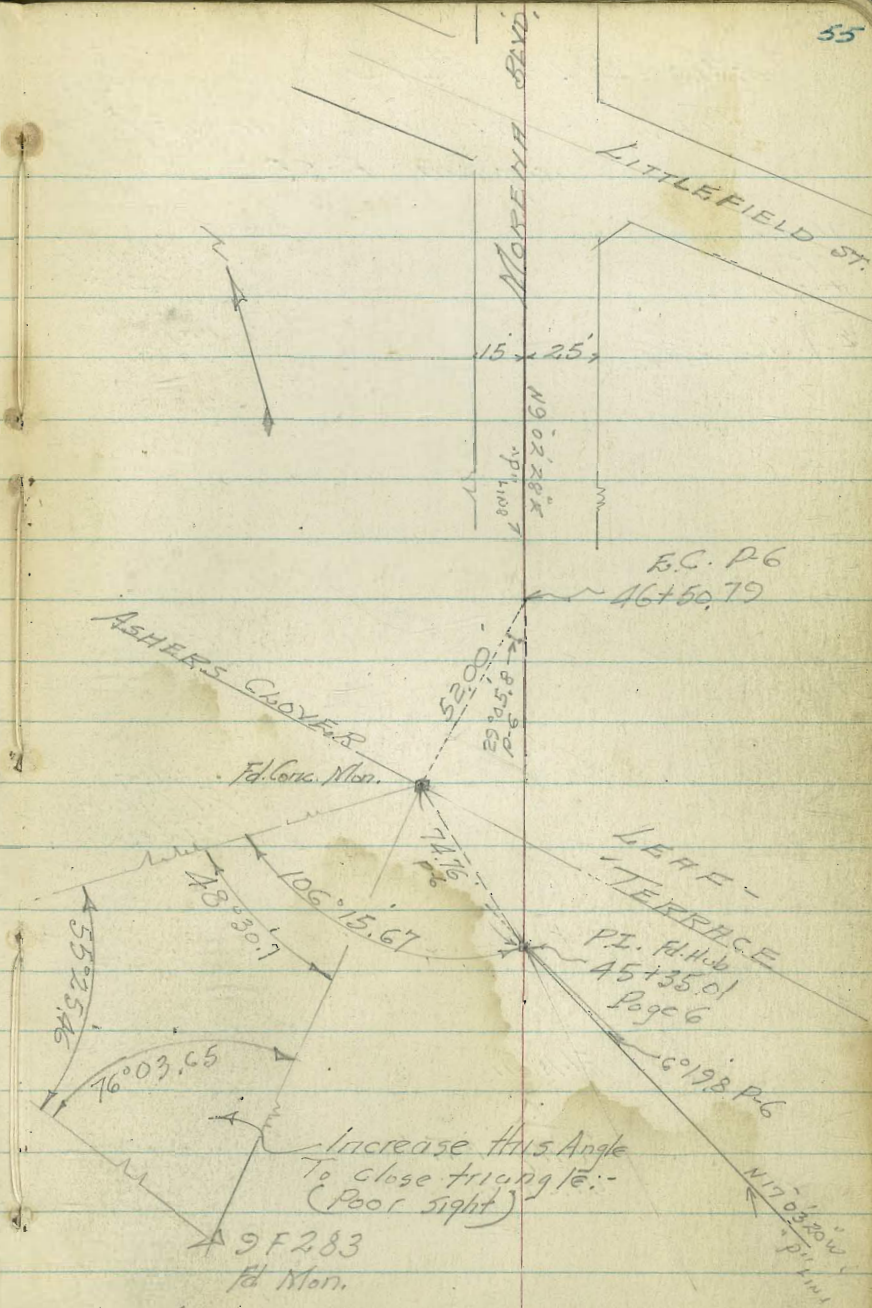 55
MORENA BLVD.
LITTLEFIELD ST.
N
15' 25'
N9°02'28"E
"P" LINE
E.C. P-6
46+50.79
ASHERS CLOVER
52.00'
29°05.8'
P-6
Fd. Conc. Mon.
LEAF-
TERRACE
74.76'
P-6
106°15.67'
48°30.7'
P.I. Fd. Hub
45+35.01
Page 6
55°25.46'
76°03.65'
6°19.8' P-6
Increase this Angle
To close triangle:-
(Poor sight)
N17°03'20"W
"P" LINE
9F283
Fd Mon.